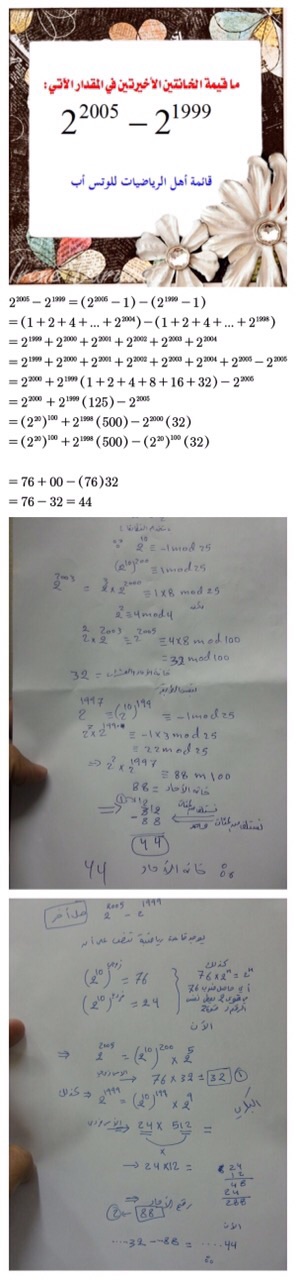 ما قيمة الخانتين الأخيرتين في المقدار الآتي:
2²⁰⁰⁵ − 2¹⁹⁹⁹
قائمة أهل الرياضيات للوتس أب
2²⁰⁰⁵ − 2¹⁹⁹⁹ = (2²⁰⁰⁵ − 1) − (2¹⁹⁹⁹ − 1)
= (1 + 2 + 4 + ... + 2²⁰⁰⁴) − (1 + 2 + 4 + ... + 2¹⁹⁹⁸)
= 2¹⁹⁹⁹ + 2²⁰⁰⁰ + 2²⁰⁰¹ + 2²⁰⁰² + 2²⁰⁰³ + 2²⁰⁰⁴
= 2¹⁹⁹⁹ + 2²⁰⁰⁰ + 2²⁰⁰¹ + 2²⁰⁰² + 2²⁰⁰³ + 2²⁰⁰⁴ + 2²⁰⁰⁵ − 2²⁰⁰⁵
= 2²⁰⁰⁰ + 2¹⁹⁹⁹ (1 + 2 + 4 + 8 + 16 + 32) − 2²⁰⁰⁵
= 2²⁰⁰⁰ + 2¹⁹⁹⁹ (125) − 2²⁰⁰⁵
= (2²⁰)¹⁰⁰ + 2¹⁹⁹⁸ (500) − 2²⁰⁰⁰ (32)
= (2²⁰)¹⁰⁰ + 2¹⁹⁹⁸ (500) − (2²⁰)¹⁰⁰ (32)
= 76 + 00 − (76) 32
= 76 − 32 = 44
2¹⁰ ≡ -1 mod 25
(2¹⁰)²⁰⁰ ≡ 1 mod 25
2²⁰⁰³ = 2³ × 2²⁰⁰⁰ ≡ 1 × 8 mod 25
2² ≡ 4 mod 4
2² × 2²⁰⁰³ = 2²⁰⁰⁵ ≡ 4×8 mod 100
≡ 32 mod 100
32 =
2¹⁹⁹⁷ ≡ (2¹⁰)¹⁹⁹ ≡ -1 mod 25
≡ -1 × 3 mod 25
≡ 22 mod 25
⇒ 2² × 2¹⁹⁹⁷ ≡ 88 m 100
88 = خانة الآحاد
- 88
44
44 خانة الآحاد
حل آخر 2²⁰⁰⁵ - 2¹⁹⁹⁹
(2¹⁰)زوجي = 76
(2¹⁰)فردي = 24
كذلك
76 × 2ⁿ = 2ⁿ
الآن
⇒ 2²⁰⁰⁵ = (2¹⁰)²⁰⁰ × 2⁵
→ 76 × 32 = 32 ①
2¹⁹⁹⁹ = (2¹⁰)¹⁹⁹ × 2⁹ ⇐ كذلك
→ 24 × 512 =
→ 24×12 =
24
12
48
24
288
② ← 88
الآن
....32 - ...88 = ....44